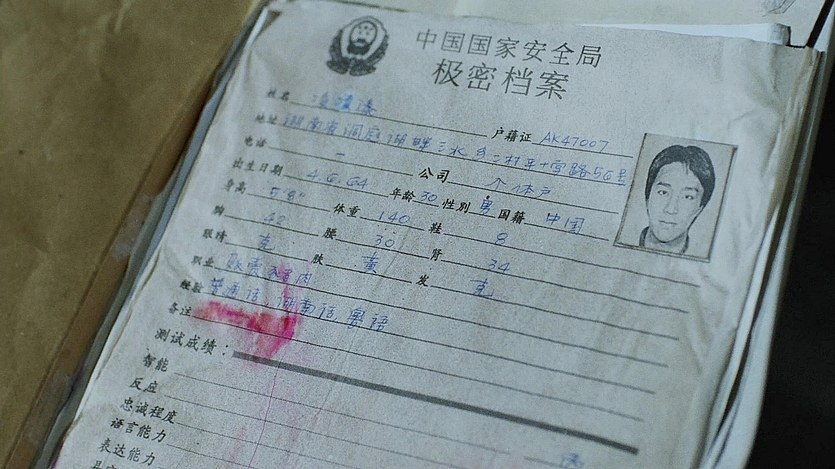 中国国家安全局
极密档案
姓名 户籍证 AK47007
地址 湖南省洞庭湖畔三水乡二村 路56号
电话 — 公司 个体户
出生日期 4.6.64 年龄 30 性别 男 国籍 中国
身高 5'8" 体重 140 鞋 8
胸 42 腰 30 肾 34
眼睛 黑 肤 黄 发 黑
职业 贩卖 肉
经验 普通话, 湖南话, 粤语
备注
测试成绩：
智能
反应
忠诚程度
语言能力
表达能力